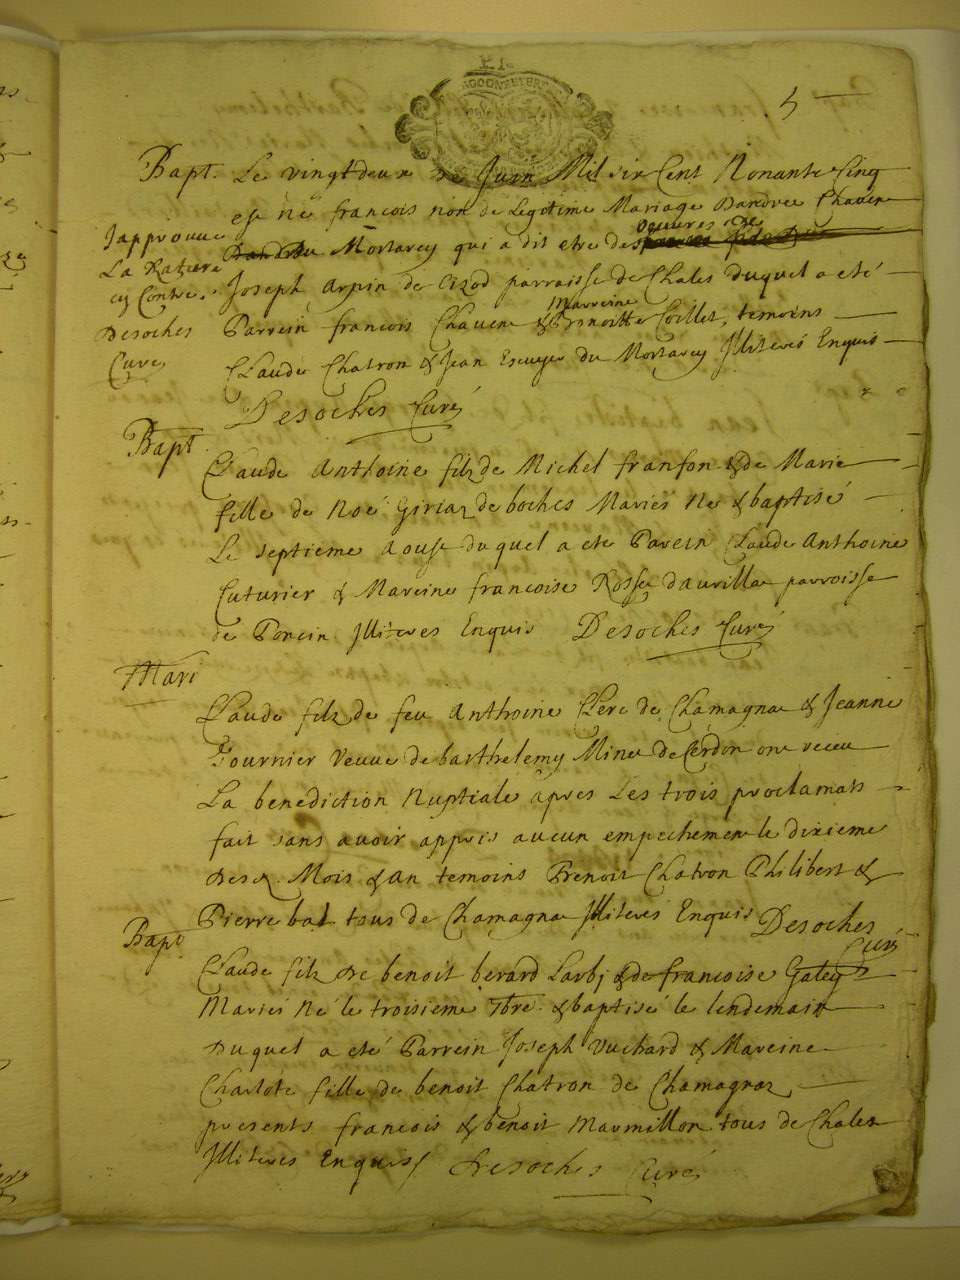 5
Bapt. Le vingtdeux de Juin Mil six Cent Nonante Cinq
est né francois non de Legitime Mariage Dandree Chavent
Japprouve
La Rature
cy Contre.
Desoches
Curé
du Mortarey qui a dit etre des oeuvres de
Joseph Arpin de Cizod parroisse de Chales duquel a eté
Parrein francois Chavent & Marreine Benoitte Coillet, temoins
Claude Chatron & Jean Escuyer du Mortarey Illiterés Enquis
Desoches Curé
Bapt
Claude Anthoine filz de Michel franfon & de Marie
fille de Noé Giriaz de boches Mariés né & baptisé
Le septieme Aoust duquel a eté Parein Claude Anthoine
Cuturier & Mareine francoise Rosse daurillat parroisse
de Poncin Illiteres Enquis Desoches Curé
Mari
Claude filz de feu Anthoine Clerc de Chamagnat & Jeanne
Fournier veuve de barthelemy Minet de Cerdon ont receu
La benediction Nuptiale apres Les trois proclamats
fait sans avoir appris aucun empechement le dixieme
desd. Mois & an temoins Benoit Chatron Philibert &
Pierre bal tous de Chamagnat Illiterés Enquis Desoches
Curé
Bapt
Claude filz de benoit berard Larbj & de francoise Galey
Mariés Né le troisieme 7bre & baptisé le lendemain
Duquel a eté Parrein Joseph Vuchard & Mareine
Charlote fille de benoit Chatron de Chamagnaz
presents francois & benoit Marmillon tous de Chales
Illiteres Enquis Desoches Curé